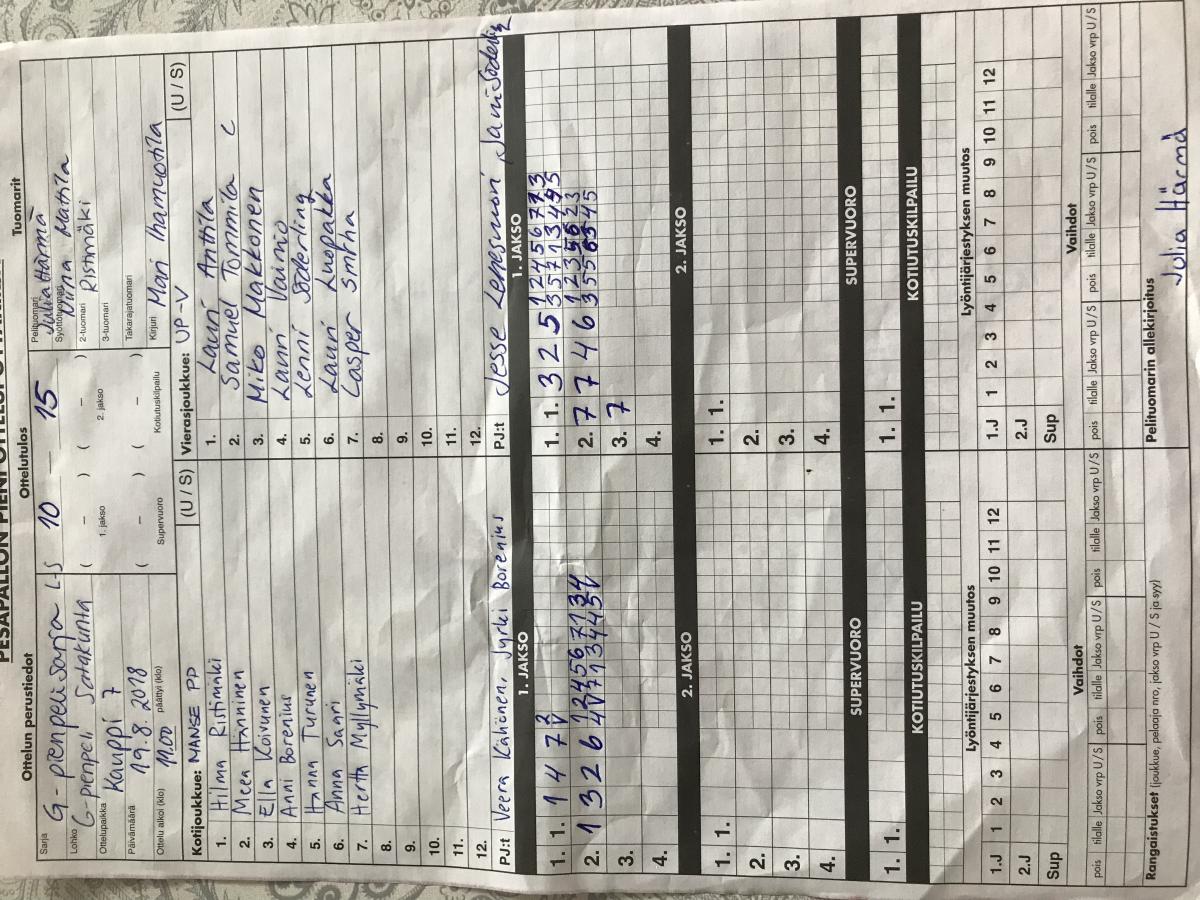 PESÄPALLON PIENI OTTELUPÖYTÄKIRJA
Ottelun perustiedot
Ottelutulos
Tuomarit
Sarja G-pienpelisarja L-S
10 15
Pelituomari Julia Härmä
Lohko G-pienpeli Satakunta
( – ) ( – )
1. jakso 2. jakso
Syöttötuomari Niina Mattila
Ottelupaikka Kauppi 7
2-tuomari Ristimäki
3-tuomari
Päivämäärä 19.8.2018
( – ) ( – )
Supervuoro Kotiutuskilpailu
Takarajatuomari
Ottelu alkoi (klo) 11.00 päättyi (klo)
Kirjuri Mari Ihamuotila
Kotijoukkue: MANSE PP (U / S)
Vierasjoukkue: UP-V (U / S)
1. Hilma Ristimäki
1. Lauri Anttila
2. Meea Hänninen
2. Samuel Tommila C
3. Ella Koivunen
3. Miko Makkonen
4. Anni Borenius
4. Lauri Vainio
5. Hanna Turunen
5. Lenni Söderling
6. Anna Saari
6. Lauri Luopakka
7. Hertta Myllymäki
7. Casper Smrha
8. 8.
9. 9.
10. 10.
11. 11.
12. 12.
PJ:t Veera Kähönen, Jyrki Borenius
PJ:t Jesse Leppsuori, Jami Söderling
1. JAKSO 1. JAKSO
1. 1. 1 4 7
1. 1. 3 2 5
2. 1 3 2 6
2. 7 7 4 6
3.
3. 7
4. 4.
2. JAKSO 2. JAKSO
1. 1. 1. 1.
2. 2.
3. 3.
4. 4.
SUPERVUORO SUPERVUORO
1. 1. 1. 1.
KOTIUTUSKILPAILU KOTIUTUSKILPAILU
Lyöntijärjestyksen muutos Lyöntijärjestyksen muutos
1.J 1 2 3 4 5 6 7 8 9 10 11 12
1.J 1 2 3 4 5 6 7 8 9 10 11 12
2.J 2.J
Sup Sup
Vaihdot Vaihdot
pois tilalle Jakso vrp U / S pois tilalle Jakso vrp U / S pois tilalle Jakso vrp U / S
pois tilalle Jakso vrp U / S pois tilalle Jakso vrp U / S pois tilalle Jakso vrp U / S
Rangaistukset (joukkue, pelaaja nro, jakso vrp U / S ja syy)
Pelituomarin allekirjoitus
Julia Härmä